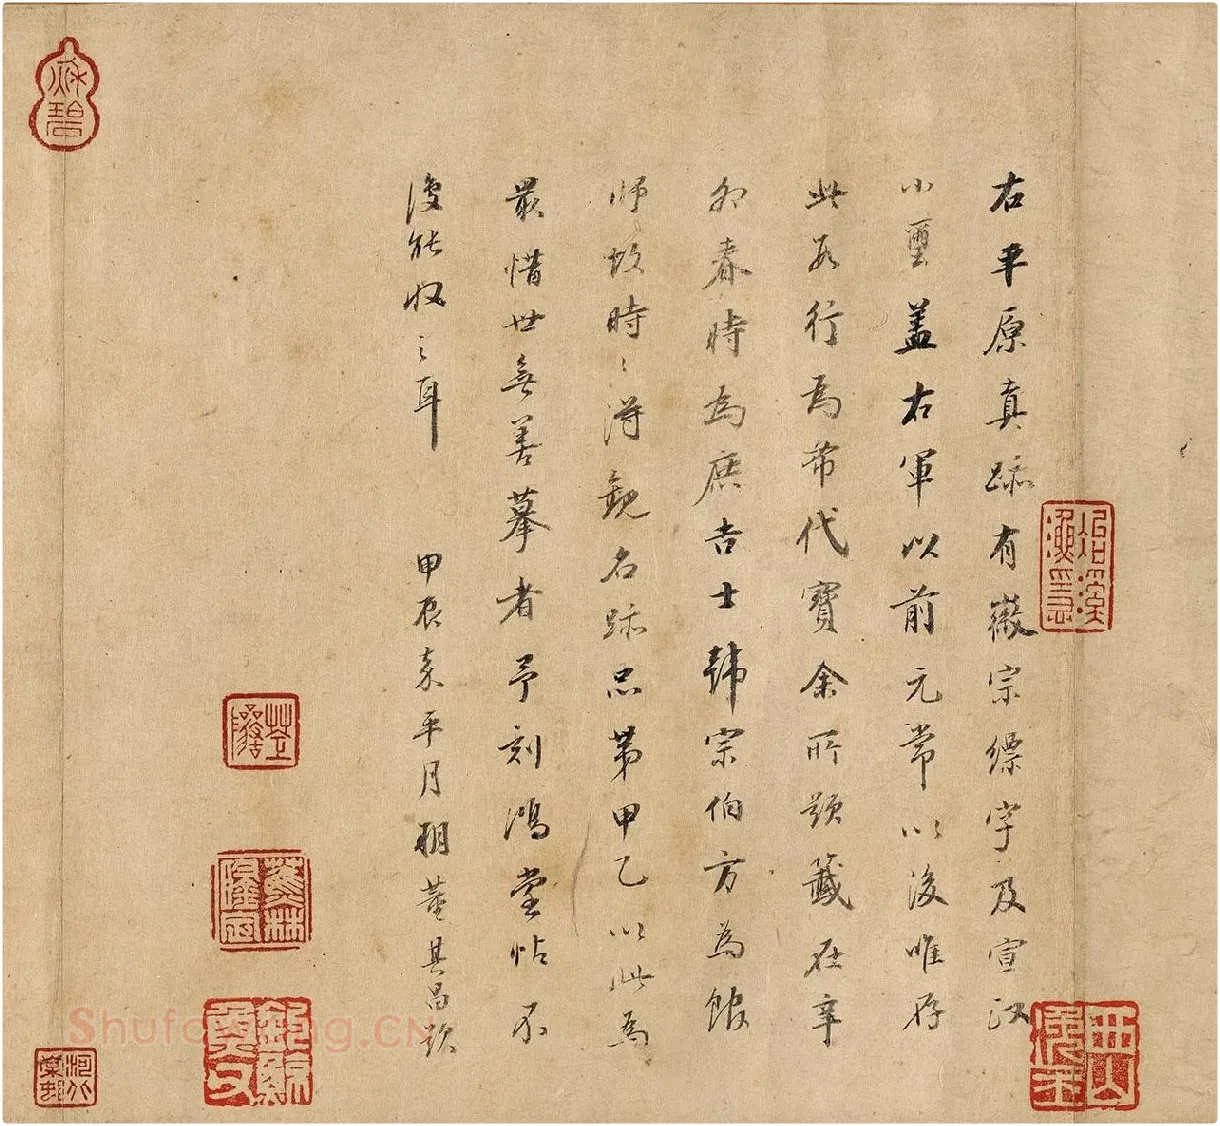 右平原真跡有徽宗縹字及宣政
小璽盖右軍以前元常以後唯存
此數行為希代寶余所題籖在辛
卯春時為庶吉士韓宗伯方為館
師故時〻得觀名跡品第甲乙以此為
最惜世無善摹者予刻鴻堂帖不
復能收之耳 甲辰嘉平月朔董其昌題
蕉林
河北棠邨
Shufawang.CN